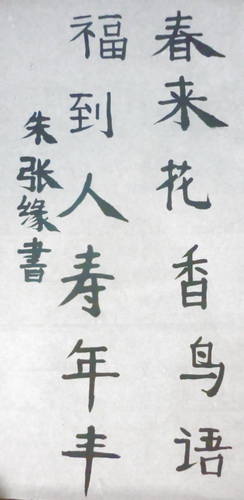 春来花香鸟语
福到人寿年丰
朱张缘書